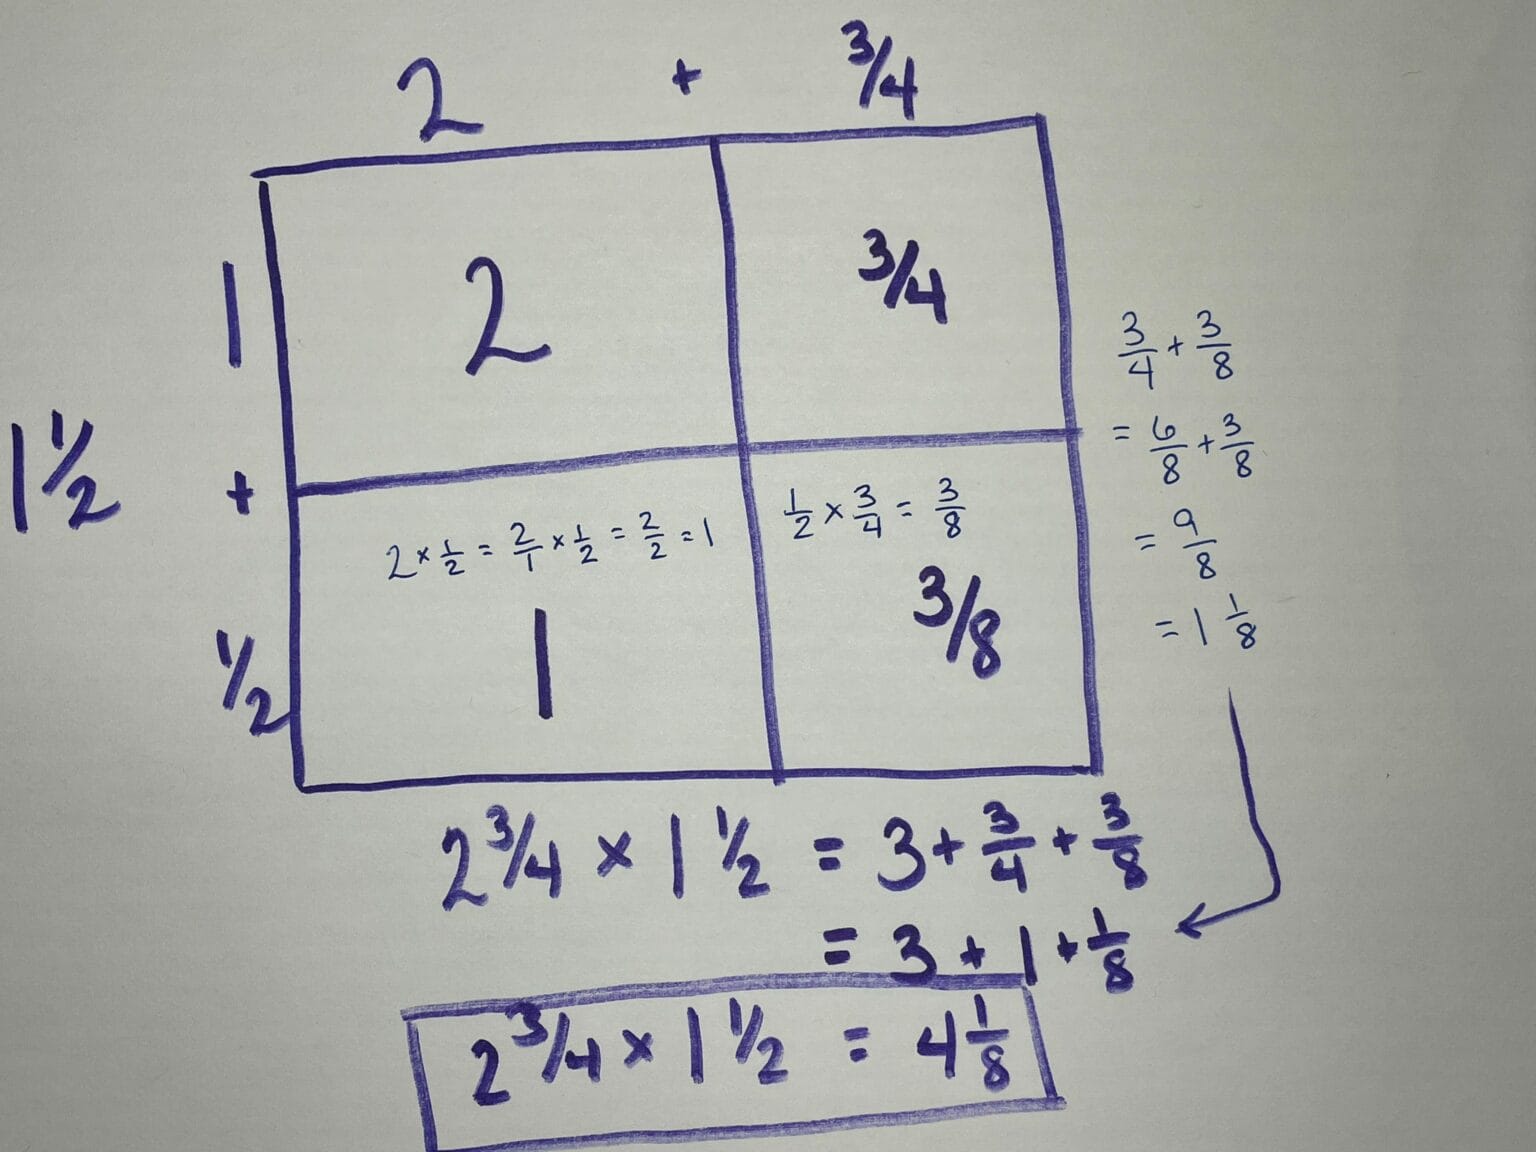 2 + 3/4
1 2 3/4
1 1/2
+
1/2
2 × 1/2 = 2/1 × 1/2 = 2/2 = 1
1
1/2 × 3/4 = 3/8
3/8
3/4 + 3/8
= 6/8 + 3/8
= 9/8
= 1 1/8
2 3/4 × 1 1/2 = 3 + 3/4 + 3/8
= 3 + 1 + 1/8
2 3/4 × 1 1/2 = 4 1/8